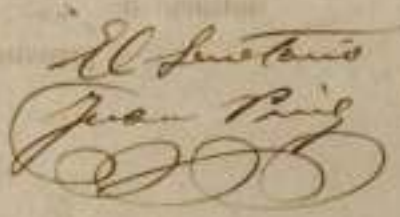 El Secretario
Juan Puig